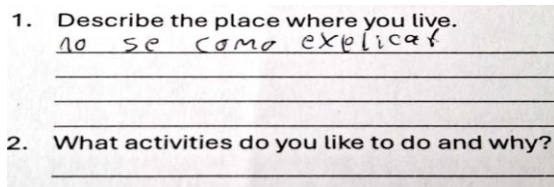 1. Describe the place where you live.
no se como explicar
2. What activities do you like to do and why?